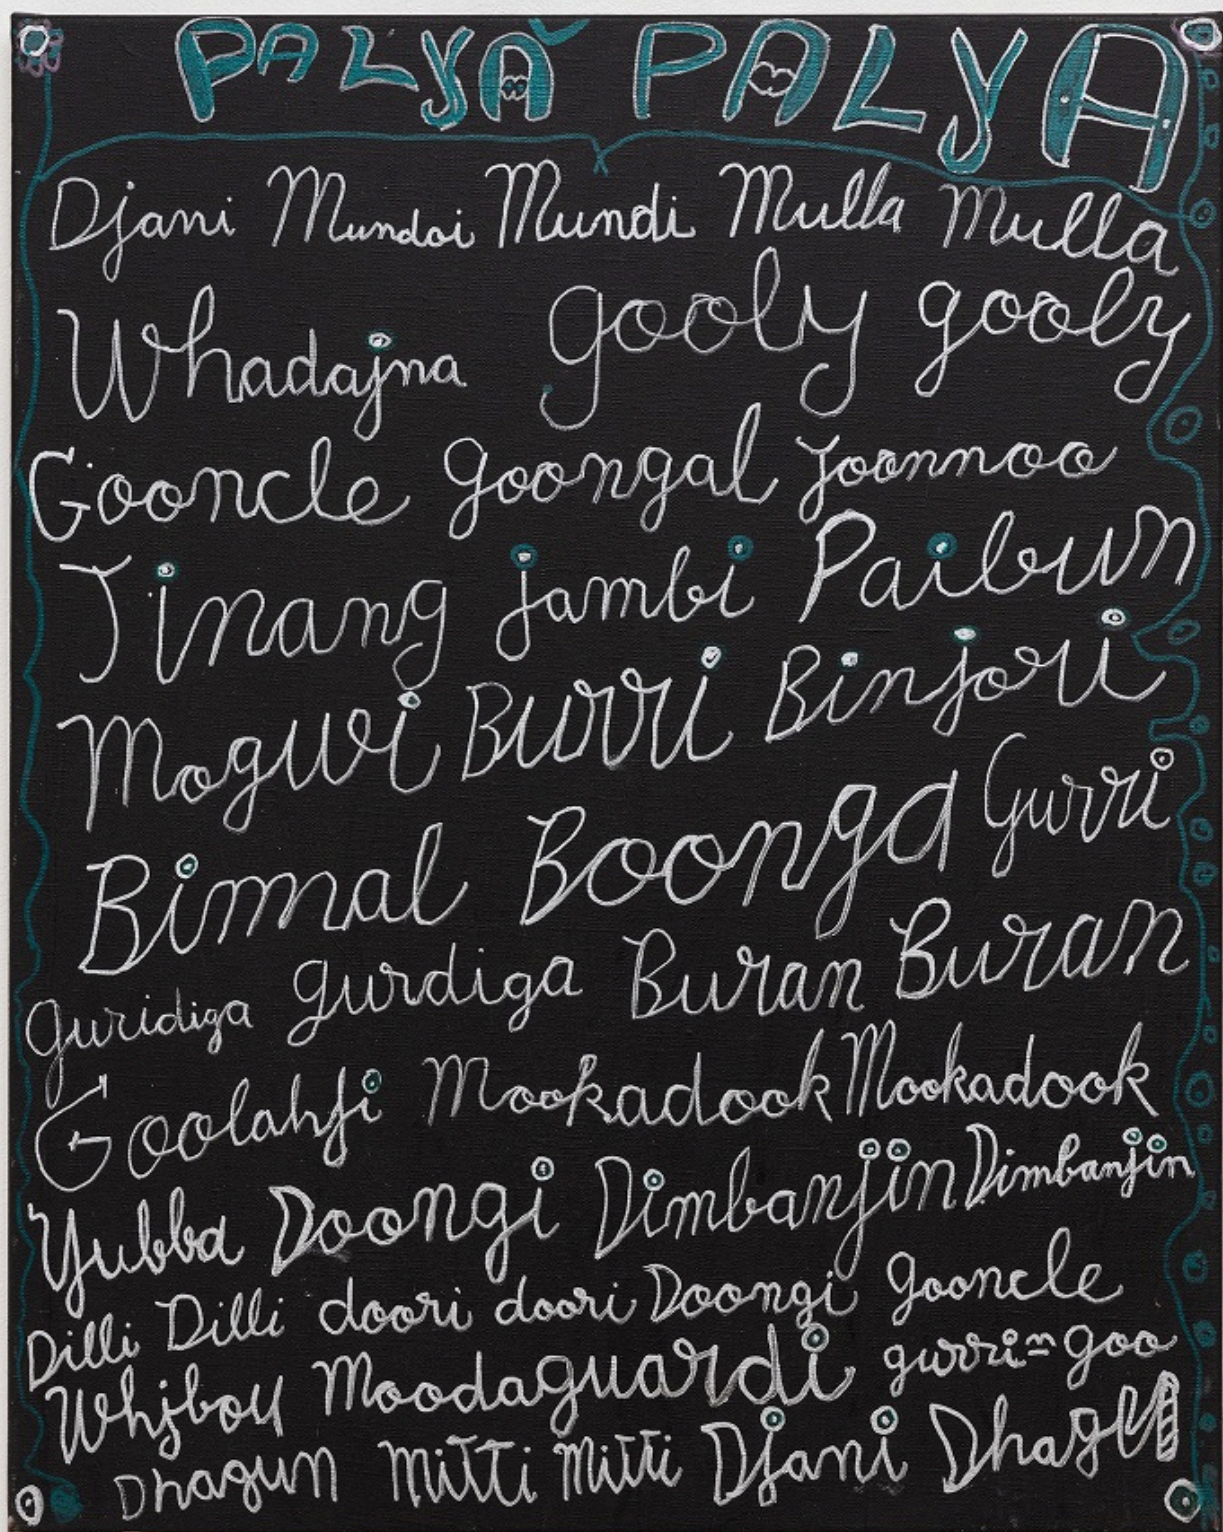 PALYA PALYA
Djani Mundoi Mundi Mulla Mulla
Whadajna gooly gooly
Gooncle goongal Joonnoo
Jinang jambi Paibun
Mogwi Burri Binjori
Bimmal Boonga Gurri
guridiga gurdiga Buran Buran
Goolahji Mookadook Mookadook
Yubba Doongi Dimbanjin Dimbanjin
Dilli Dilli doori doori Doongi gooncle
Whjbou Moodaguardi gurri=goo
Dhagun Mitti Mitti Djani Dhagu